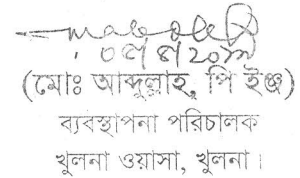 (মোঃ আব্দুল্লাহ্, পি ইঞ্জ)
ব্যবস্থাপনা পরিচালক
খুলনা ওয়াসা, খুলনা।